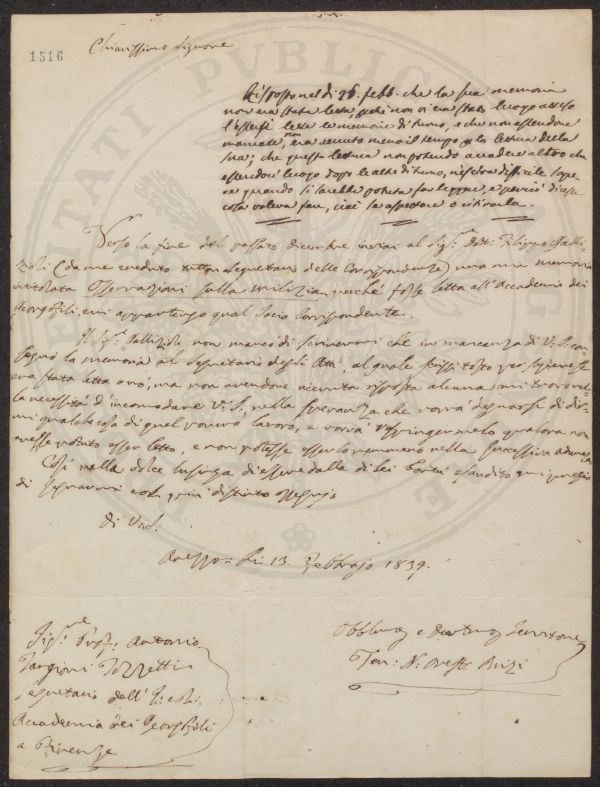 1516
Chiarissimo Signore
Risposto nel dì 26. febb. che la sua memoria
non era stata letta, perchè non vi era stato luogo atteso
l'essersi lette le memorie di turno, e che non essendone
mancate, era venuto meno il tempo per la lettura della
sua; che questa lettura non potendo accadere altro che
essendovi luogo dopo le altre di turno, riesciva difficile sape
re quando si sarebbe potuta far leggere, e perciò dicesse
cosa voleva fare, cioè se aspettare o ritirarla.
Verso la fine del passato dicembre inviai al Sig.re Dott. Filippo Galli
zioli (da me creduto tuttora Segretario delle Corrispondenze) una mia memoria
intitolata Osservazioni sulla milizia, perché fosse letta all'Accademia dei
Georgofili, cui appartengo qual Socio Corrispondente.
Il Sig.re Gallizioli non mancò di scrivermi che in mancanza di V. S. con-
segnò la memoria al Segretario degli Atti, al quale scrissi tosto per sapere se
era stata letta o nò; ma non avendone ricevuta risposta alcuna, mi trovo nel
la necessità d'incomodare V. S., nella speranza che vorrà degnarsi di dir-
mi qualche cosa di quel povero lavoro, e vorrà respingermelo qualora non
avesse potuto esser letto, e non potesse esserlo nemmeno nella successiva adunanza
Così nella dolce lusinga di essere dalla di lei bontà esaudito mi pregio
di segnarmi col più distinto ossequio
di V.S.
Arezzo Li 13. Febbrajo 1839.
Sig.re Prof. Antonio
Targioni Tozzetti
Segretario dell'I. e R.
Accademia dei Georgofili
a Firenze
Obblmo e Devmo Servitore
Ten: Oreste Brizi